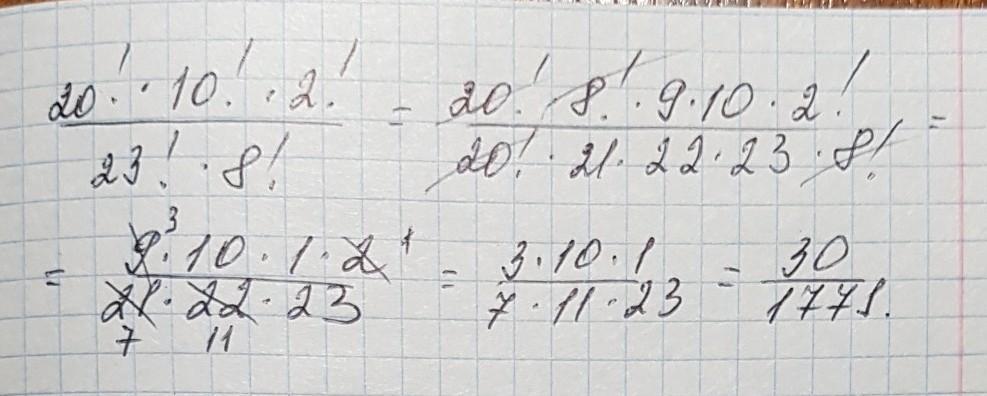 20! · 10! · 2! / 23! · 8! = 20! 8! · 9 · 10 · 2! / 20! · 21 · 22 · 23 · 8! =
= 9 3 · 10 · 1 · 2 1 / 21 7 · 22 11 · 23 = 3 · 10 · 1 / 7 · 11 · 23 = 30 / 1771.